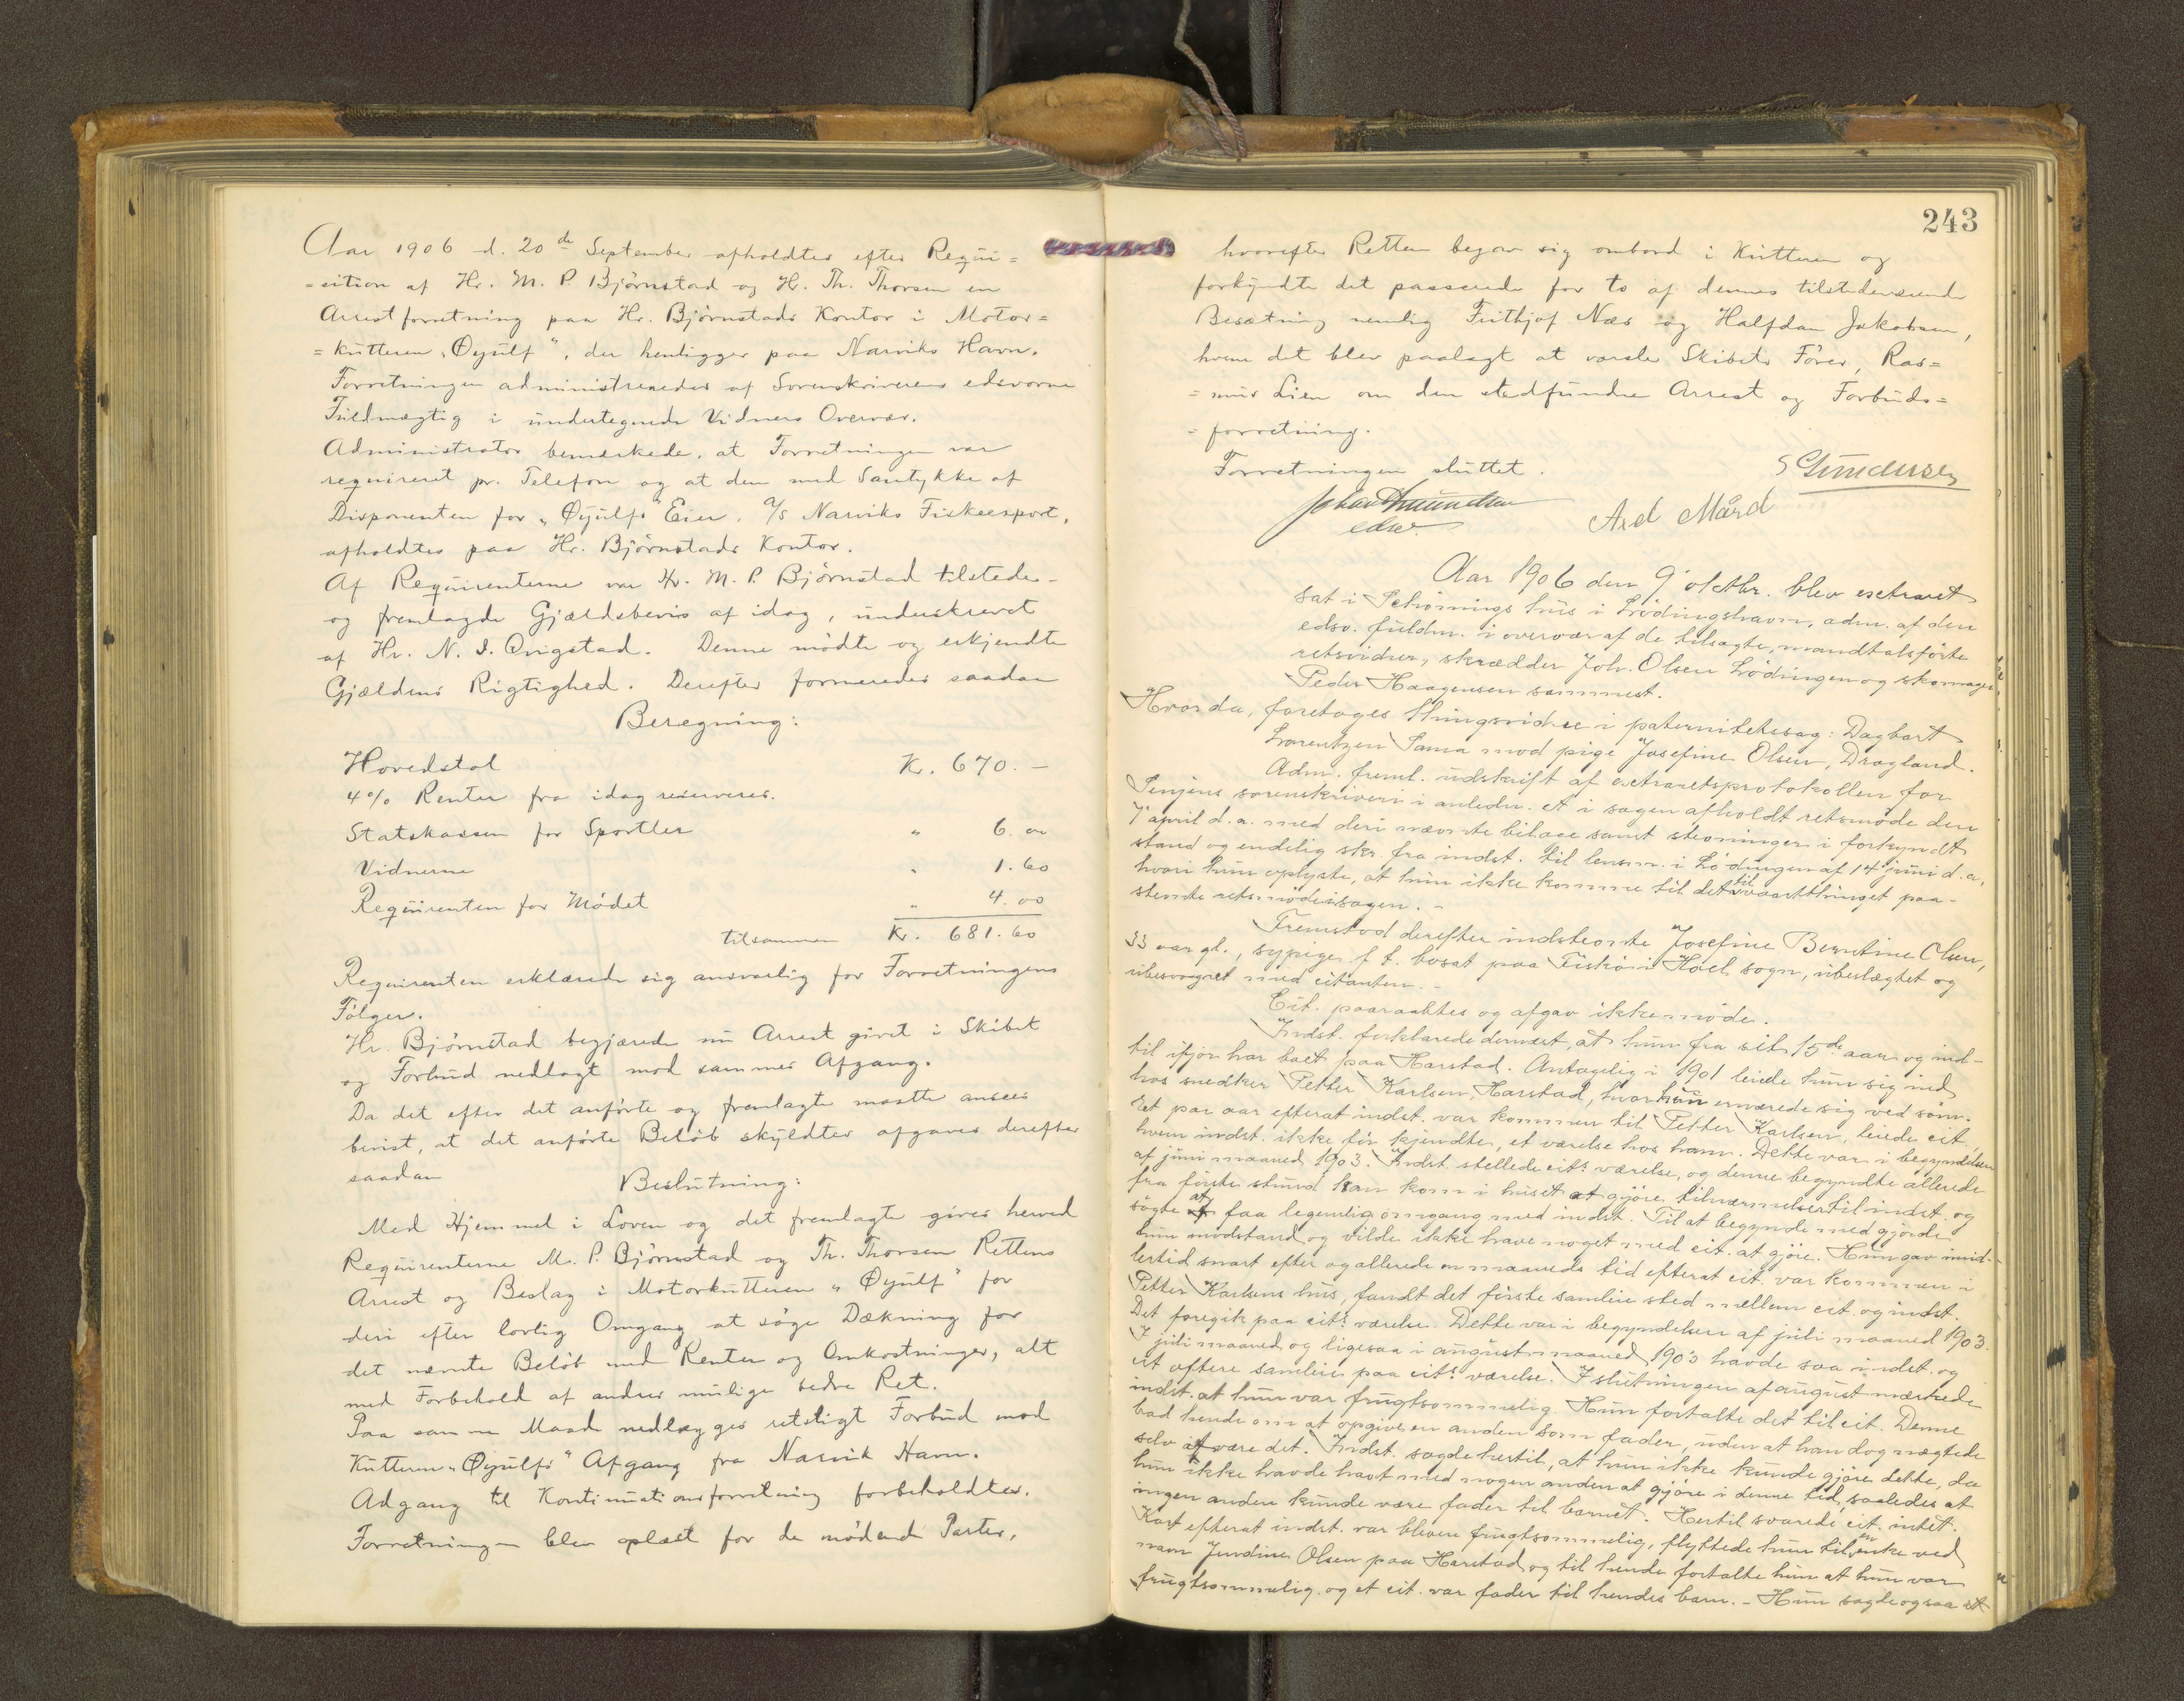 Aar 1906 d. 20de September afholdtes efter Requi=
=sition af Hr. M. P. Björnstad og H. Th. Thorsen en
Arrestforretning paa Hr. Björnstads Kontor i Motor=
=kutteren „Öyulf", der henligger paa Narviks Havn.
Forretningen administreredes af Sorenskriverens edsvorne
Fuldmægtig i undertegnede Vidners Overvær.
Administrator bemærkede, at Forretningen var
requireret pr. Telefon og at den med Samtykke af
Disponenten for „Öyulfs" Eier, A/S Narviks Fiskeexport,
afholdtes paa Hr. Björnstads Kontor.
Af Requirenterne var Hr. M. P. Björnstad tilstede
og fremlagde Gjældsbevis af idag, underskrevet
af Hr. N. I. Qvigstad. Denne mödte og erkjendte
Gjældens Rigtighed. Derefter formeredes saadan
Beregning:
Hovedstol Kr. 670.—
4% Renter fra idag reserveres.
Statskassen for Sportler " 6.00
Vidnerne " 1.60
Requirenten for Mödet " 4.00
tilsammen Kr. 681.60
Requirenten erklærede sig ansvarlig for Forretningens
Fölger.
Hr. Björnstad begjærede nu Arrest givet i Skibet
og Forbud nedlagt mod sammes Afgang.
Da det efter det anförte og fremlagte maatte ansees
bevist, at det anförte Belöb skyldtes afgaves derefter
saadan
Beslutning:
Med Hjemmel i Loven og det fremlagte gives herved
Requirenterne M. P. Björnstad og Th. Thorsen Rettens
Arrest og Beslag i Motorkutteren „Öyulf" for
deri efter lovlig Omgang at söge Dækning for
det nævnte Belöb med Renter og Omkostninger, alt
med Forbehold af andres mulige bedre Ret.
Paa samme Maade nedlægges retsligt Forbud mod
Kutteren „Öyulfs" Afgang fra Narvik Havn.
Adgang til Kontinuationsforretning forbeholdtes.
Forretningen blev oplæst for de mödende Parter,
243
hvorefter Retten begav sig ombord i Kutteren og
forkyndte det passerede for to af dennes tilstedeværende
Besætning nemlig Frithjof Næs og Halfdan Jakobsen,
hvem det blev paalagt at varsle Skibets Förer, Ras=
=mus Lien om den stedfundne Arrest og Forbuds=
=forretning.
Forretningen sluttet.
S Gundersen
Johan Amundsen
edsv.
Axel Mård
Aar 1906 den 9' oktbr. blev extraret
sat i Schönings hus i Lödingshavn, adm. af den
edsv. fuldm. i overvær af de tilsagte, mandtalsförte
retsvidner, skrædder Joh. Olsen Lödingen og skomager
Peder Haagensen sammest.
Hvor da, foretoges thingsvidne i paternitetssag: Dagbart
Lorentzen Sama mod pige Josefine Olsen, Dragland.
Adm. freml. udskrift af extraretsprotokollen for
Senjens sorenskriveri i anledn. et i sagen afholdt retsmöde den
7' april d.a. med deri nævnte bilage samt stevningen i forkyndt
stand og endelig skr. fra indst. til lensm. i Lödingen af 14' juni d.a.,
hvori hun oplyste, at hun ikke komme til det til vaartthinget paa-
stevnte retsmöde i sagen. -
Fremstod derefter indstevnte Josefine Berntine Olsen,
33 aar gl., sypige, f. t. bosat paa Fiskö i Hoel sogn, ubeslægtet og
ubesvogret med citanten. -
Cit. paaraabtes og afgav ikkemöde.
Indst. forklarede dernæst, at hun fra sit 15de aar og ind-
til ifjor har boet paa Harstad. Antagelig i 1901 leiede hun sig ind
hos snedker Petter Karlsen, Harstad, hvor hun ernærede sig ved söm.
Et par aar efterat indst. var kommen til Petter Karlsen, leiede cit.,
hvem indst. ikke för kjendte, et værelse hos ham. Dette var i begyndelsen
af juni maaned 1903. Indst. stellede cit.s værelse, og denne begyndte allerede
fra förste stund han kom i huset at gjöre tilnærmelser til indst. og
sögte at faa legemlig omgang med indst. Til at begynde med gjorde
hun modstand og vilde ikke have noget med cit. at gjöre. Hun gav imid-
lertid snart efter og allerede en maaneds tid efterat cit. var kommen i
Petter Karlsens hus, fandt det förste samleie sted mellem cit. og indst.
Det foregik paa cit.s værelse. Dette var i begyndelsen af juli maaned 1903.
I juli maaned og ligesaa i august maaned 1903 havde saa indst. og
cit oftere samleie paa cit.s værelse. I slutningen af august mærkede
indst. at hun var frugtsommelig. Hun fortalte det til cit. Denne
bad hende om at opgive en anden som fader, uden at han dog nægtede
selv at være det. Indst. sagde hertil, at hun ikke kunde gjöre dette, da
hun ikke havde havt med nogen anden at gjöre i denne tid, saaledes at
ingen anden kunde være fader til barnet. Hertil svarede cit. intet.
Kort efterat indst. var bleven frugtsommelig, flyttede hun til en enke ved
navn Jendine Olsen paa Harstad og til hende fortalte hun at hun var
frugtsommelig og at cit. var fader til hendes barn. - Hun sagde ogsaa at